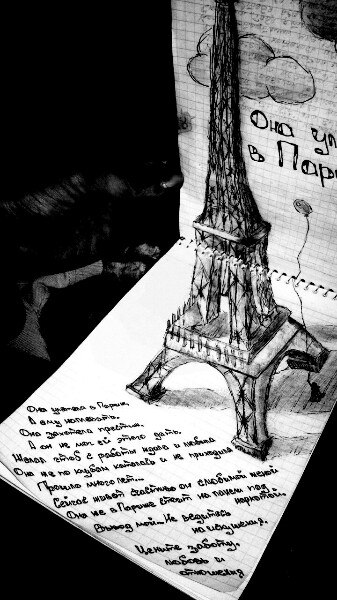 Она ул
в Пари
Она улетела в Париж.
А ему наплевать.
Она захотела престиж.
А он не мог ей этого дать.
Желал чтоб с работы ждала и любила
Она же по клубам каталась и не приходила
Прошло много лет...
Сейчас живет счастливо он с любимой женой
Она же в Париже стоит на панели под наркотой.
Вывод мой... Не ведитесь
на искушения.
Цените заботу,
любовь и
отношения